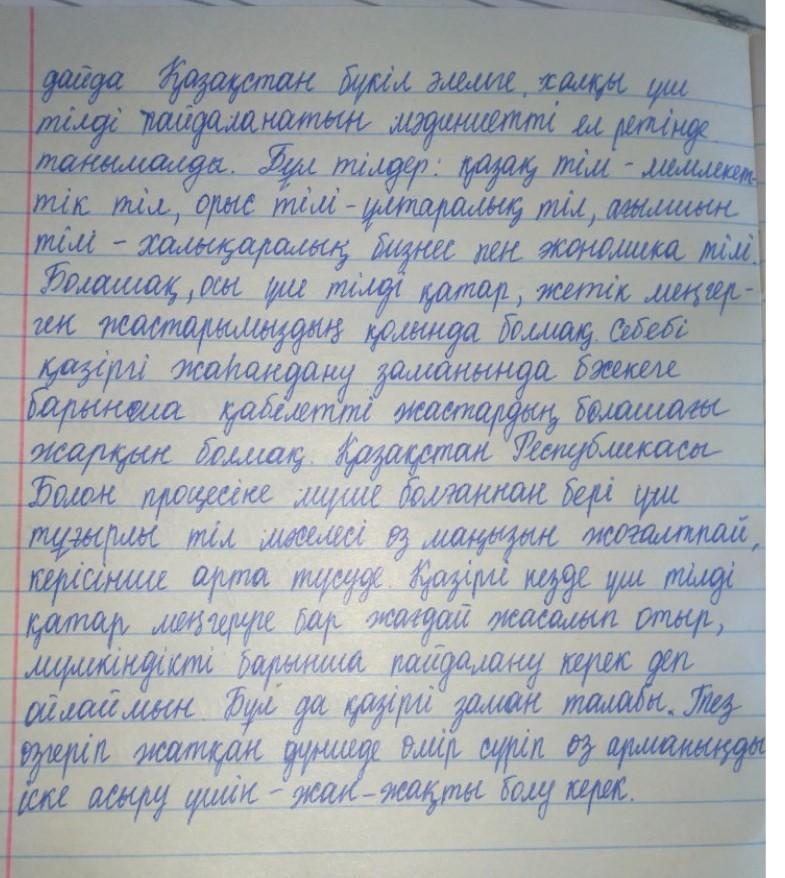 дайда Қазақстан бүкіл әлемге, халқы үш
тілді пайдаланатын мәдениетті ел ретінде
танымалды. Бұл тілдер: қазақ тілі - мемлекет-
тік тіл, орыс тілі - ұлтаралық тіл, ағылшын
тілі - халықаралық бизнес пен экономика тілі.
Болашақ, осы үш тілді қатар, жетік меңгер-
ген жастарымыздың қолында болмақ. Себебі
қазіргі жаһандану заманында бәсекеге
барынша қабілетті жастардың болашағы
жарқын болмақ. Қазақстан Республикасы
Болон процесіне мүше болғаннан бері үш
тұғырлы тіл мәселесі өз маңызын жоғалтпай,
керісінше арта түсуде. Қазіргі кезде үш тілді
қатар меңгеруге бар жағдай жасалып отыр,
мүмкіндікті барынша пайдалану керек деп
ойлаймын. Бұл да қазіргі заман талабы. Тез
өзгеріп жатқан дүниеде өмір сүріп өз арманыңды
іске асыру үшін - жан-жақты болу керек.